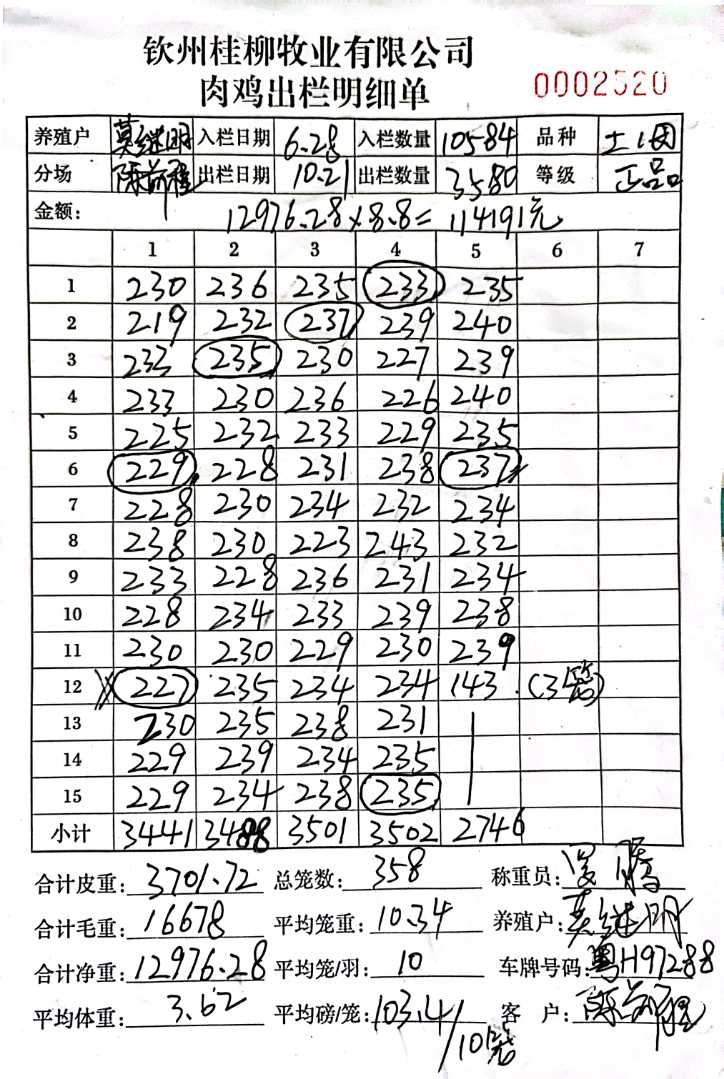 钦州桂柳牧业有限公司
肉鸡出栏明细单 0002520
养殖户 莫继明 入栏日期 6.28 入栏数量 10584 品种 土1团
分场 陈前程 出栏日期 10.21 出栏数量 3580 等级 正品
金额: 12976.28×8.8=114191元
1 2 3 4 5 6 7
1 230 236 235 233 235
2 219 232 237 239 240
3 233 235 230 227 239
4 233 230 236 226 240
5 225 232 233 229 235
6 229 228 231 238 237
7 228 230 234 232 234
8 238 230 223 243 232
9 233 228 236 231 234
10 228 234 233 239 238
11 230 230 229 230 239
12 227 235 234 234 143 (3笼)
13 230 235 238 231
14 229 239 234 235
15 229 234 238 235
小计 3441 3488 3501 3502 2746
合计皮重: 3701.72 总笼数: 358 称重员:
合计毛重: 16678 平均笼重: 10.34 养殖户: 莫继明
合计净重: 12976.28 平均笼/羽: 10 车牌号码: 粤H97288
平均体重: 3.62 平均磅/笼: 103.4/10笼 客 户: 陈前程